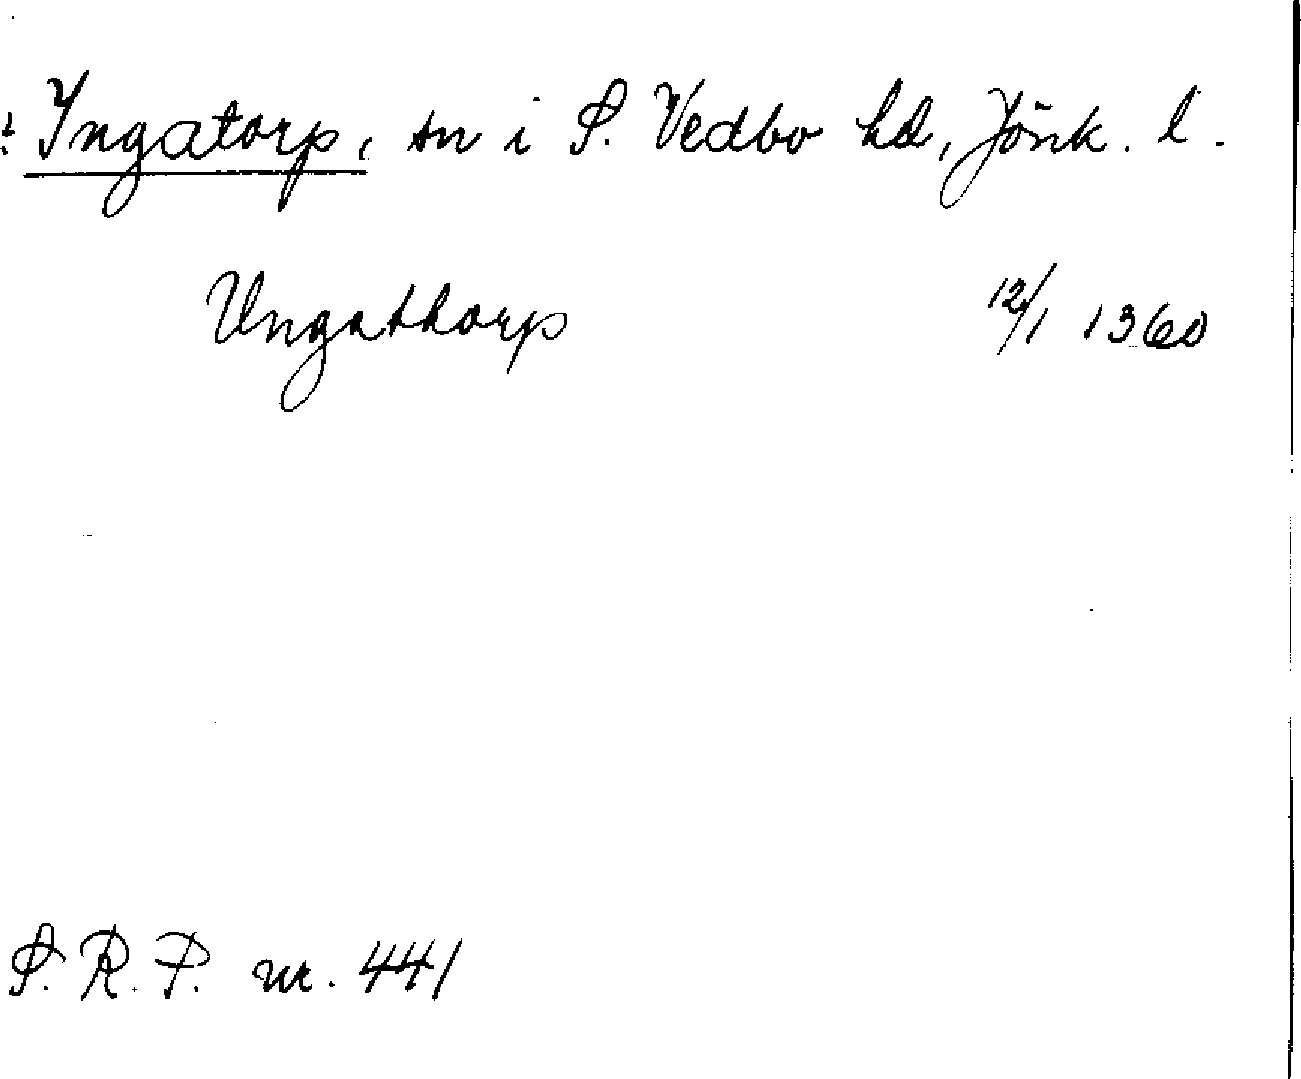 Ingatorp, sn i S. Vedbo hd, Jönk. l.
Ungathorp 12/1 1360
S. R. P. nr. 441